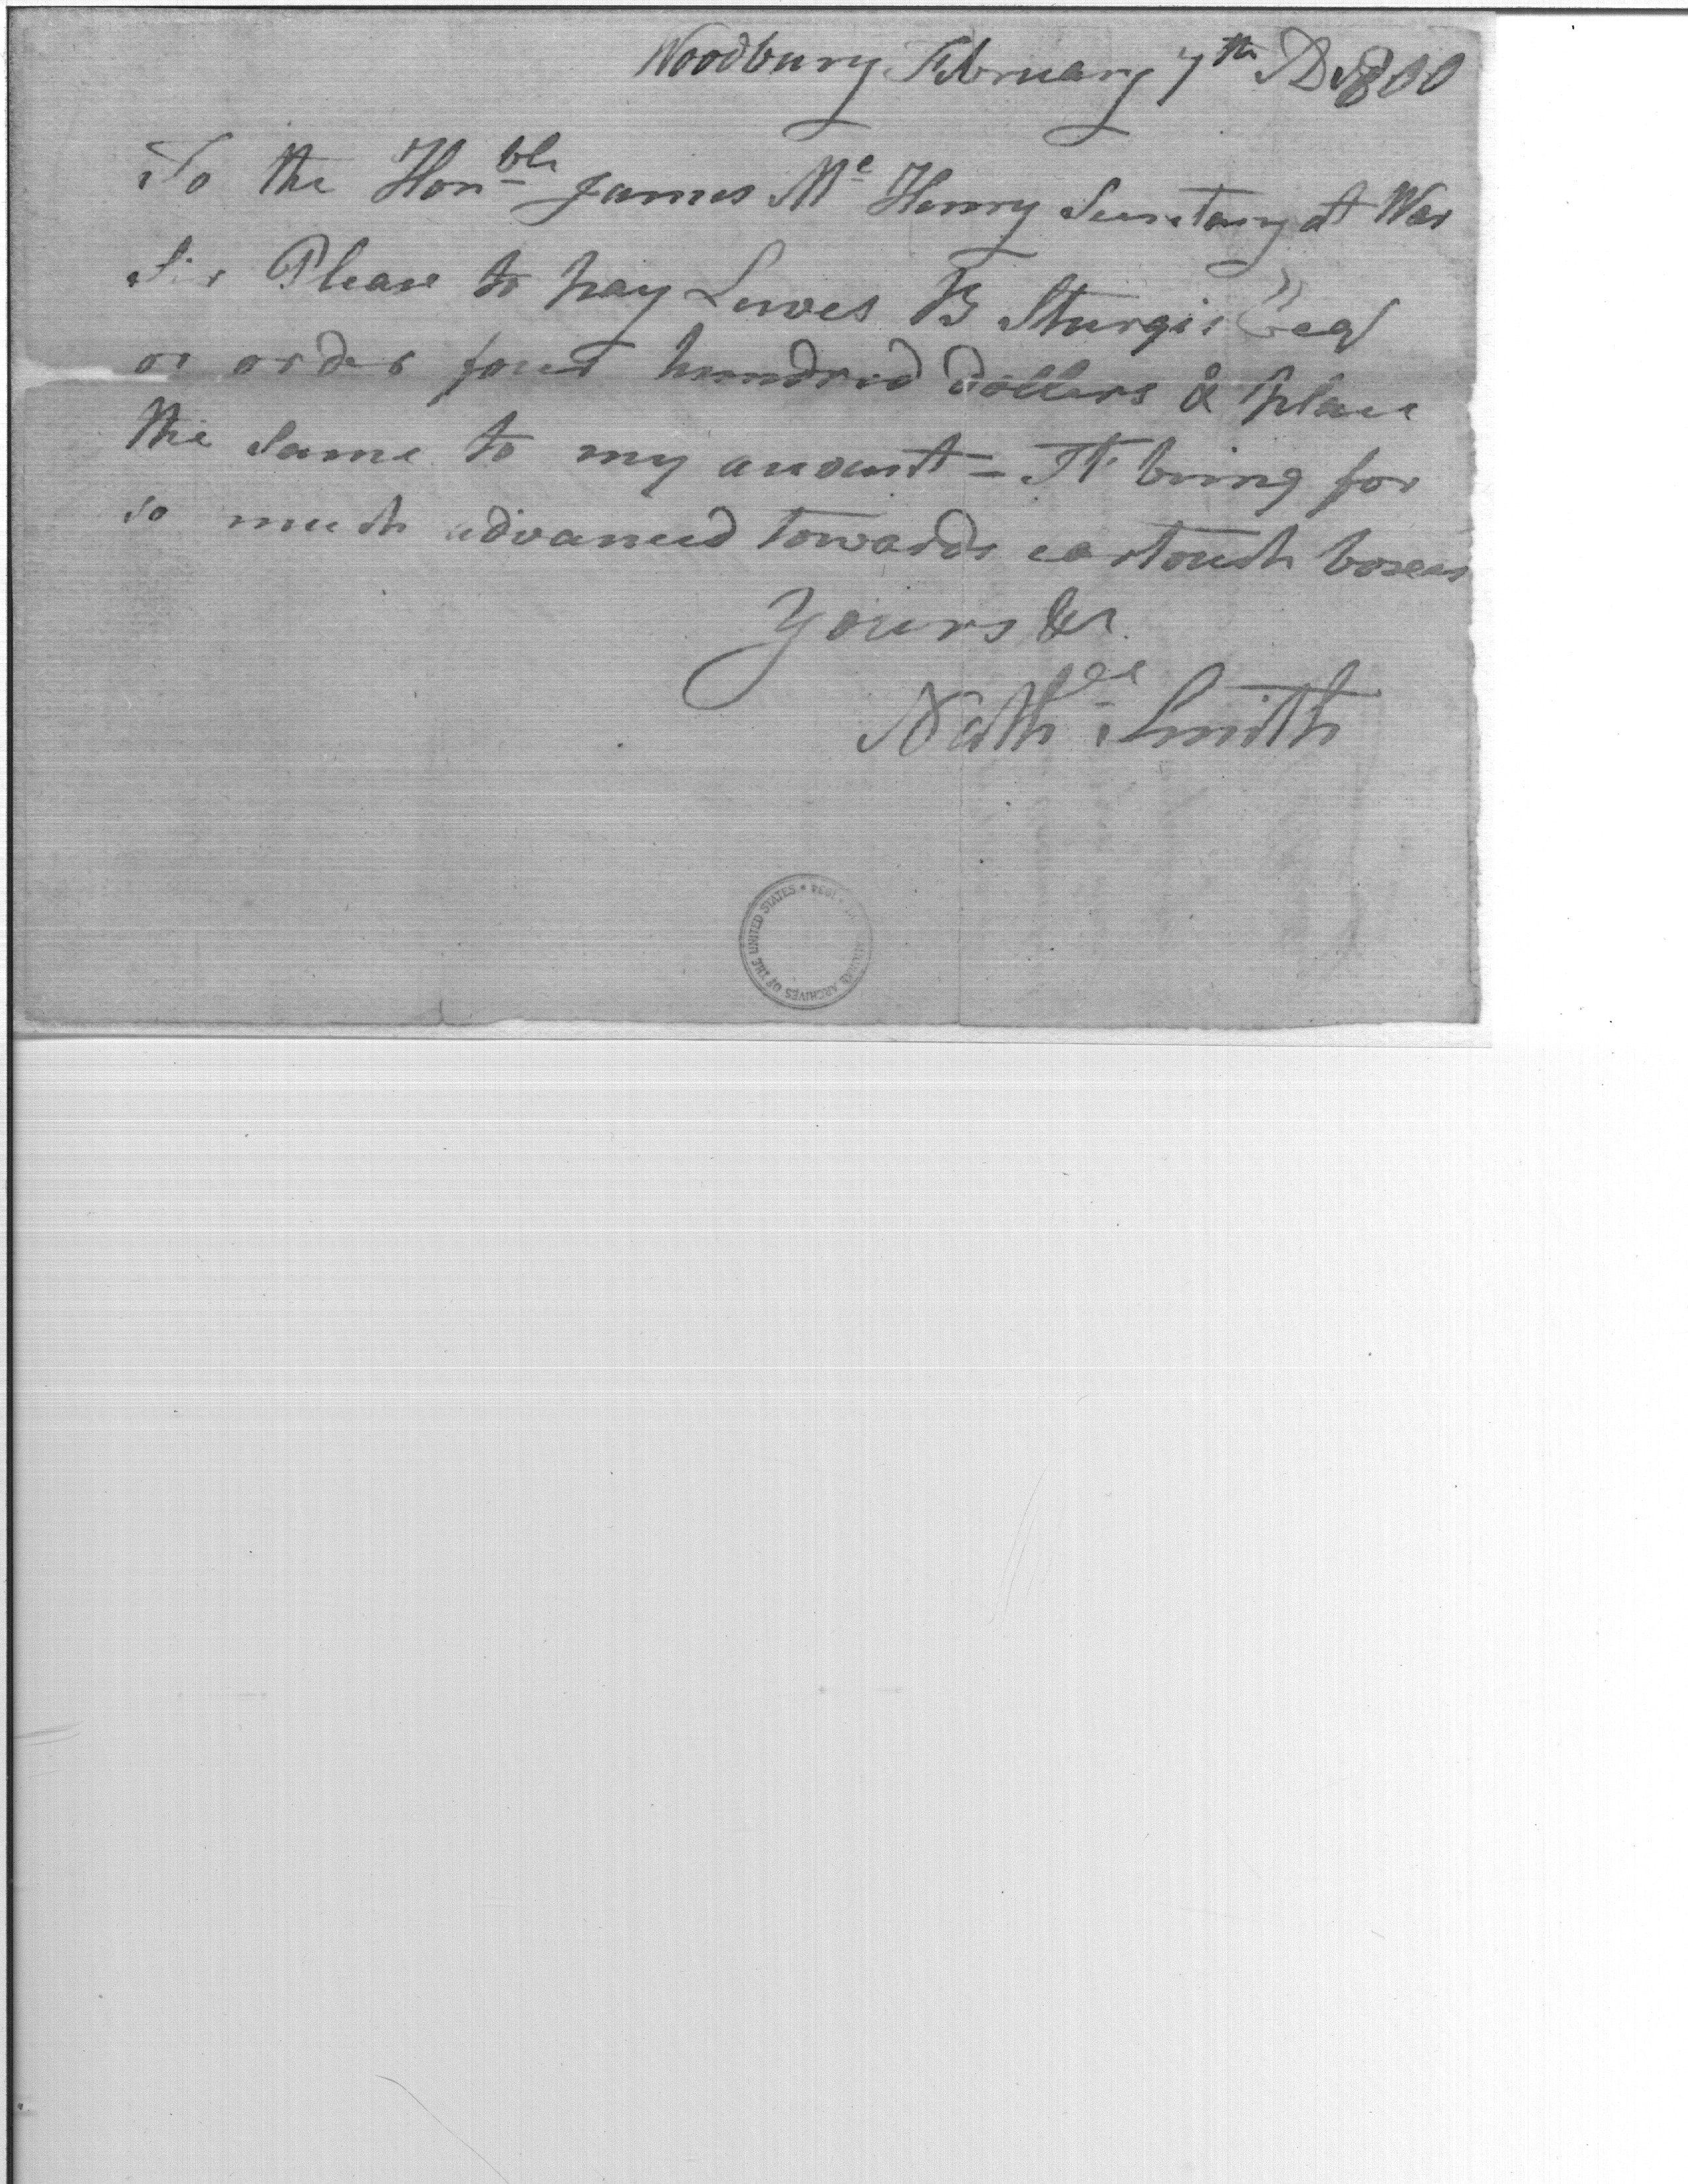 Woodbury February 7th AD 1800
To the Honble James Mc Henry Secretary at War
Sir Please to pay Lewes B Sturgis Esq
or order four hundred dollers & place
the same to my account – It being for
so much advanced towards cartouch boxes
Yours &c
Nathle Smith
ARCHIVES OF THE UNITED STATES * 1934